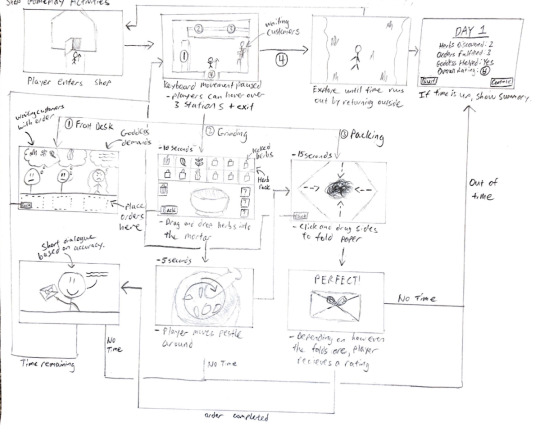 Shop Gameplay Activities
Player enters shop
waiting
customers
Keyboard movement paused
- players can hover over
3 stations + exit
4
Explore until time runs
out by returning outside
DAY 1
Herbs Discovered: 2
Orders Fulfilled: 3
Goddess Helped: Yes
Overall Rating:
If time is up, show summary
waiting customers
with order
1 Front Desk
Goddess
demands
Place
orders
here
2 Grinding
-10 seconds
herbs
Herb
- Drag and drop herbs into
the mortar
3 Packing
-15 seconds
- Click and drag sides
to fold paper
Out of
time
short dialogue
based on accuracy.
-5 seconds
- Player moves pestle
around
PERFECT!
- Depending on however
the folds are, player
receives a rating
No Time
No
Time
No Time
Time remaining
order completed